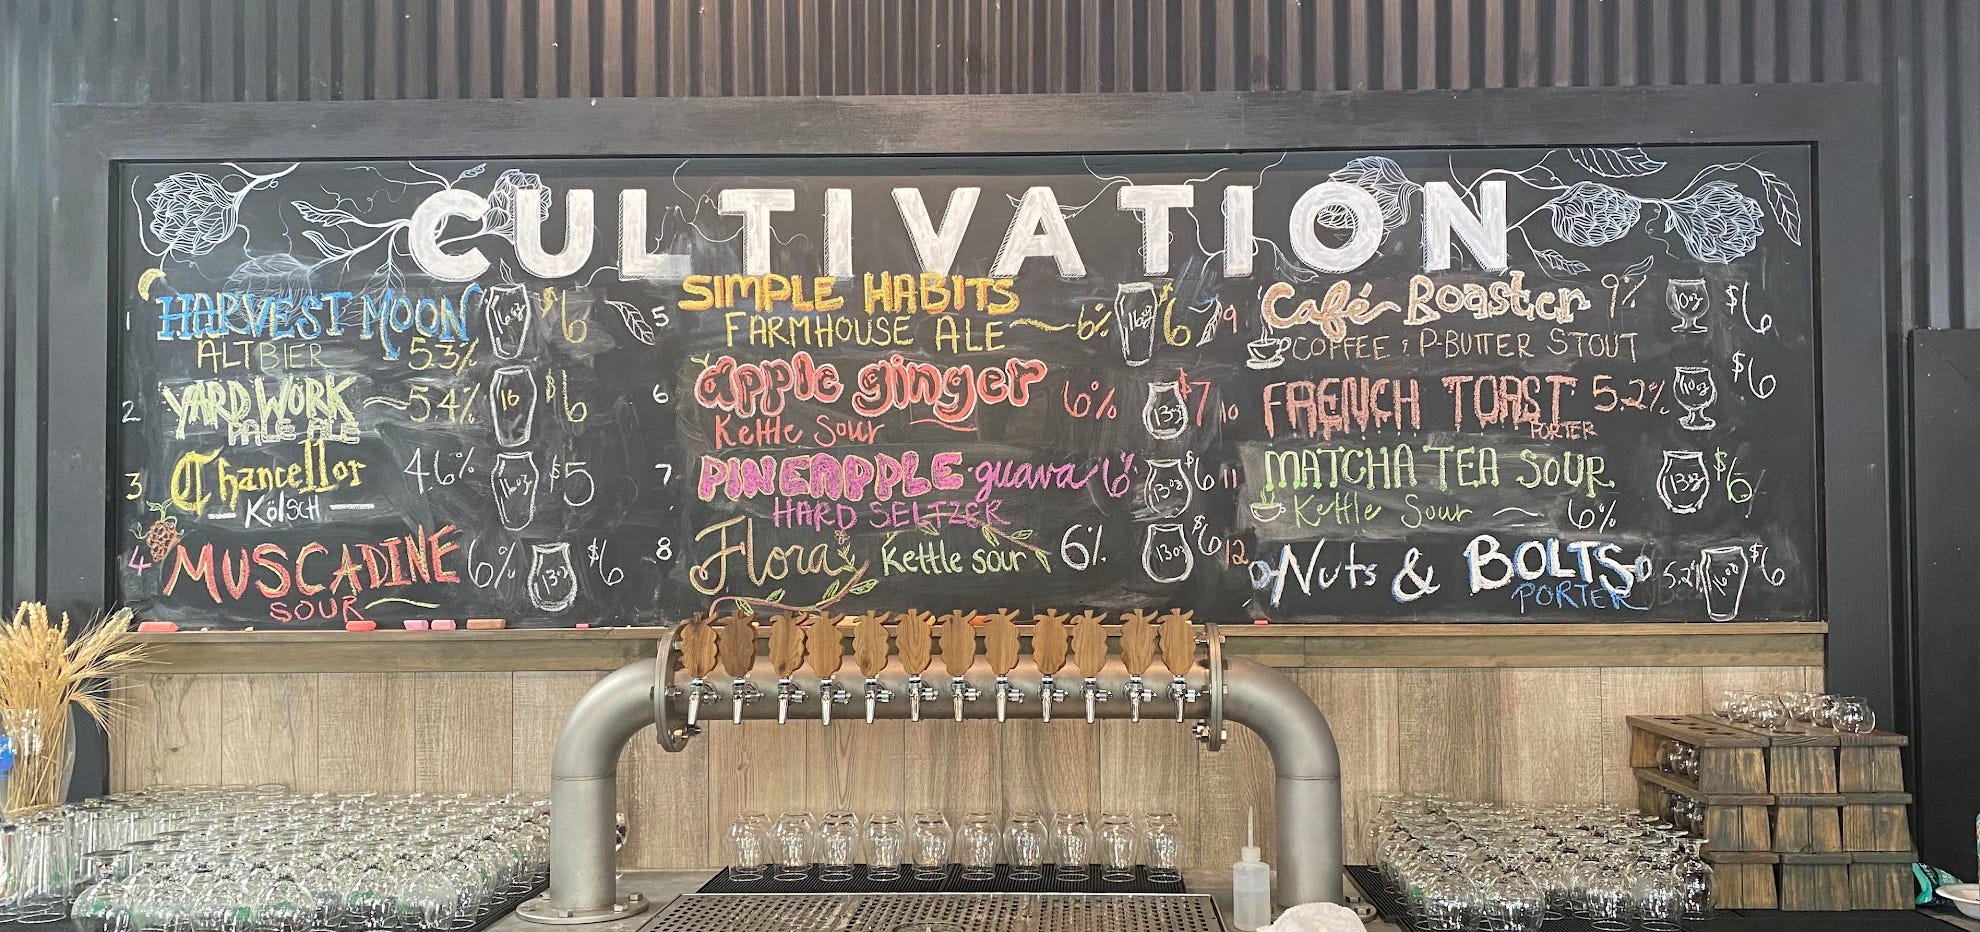 CULTIVATION
1 HARVEST MOON 16oz $6
ALTBIER 5.3%
2 YARD WORK 5.4% 16 $6
PALE ALE
3 Chancellor 4.6% 16oz $5
KÖLSCH
4 MUSCADINE 6% 13oz $6
SOUR
5 SIMPLE HABITS
FARMHOUSE ALE 6% 16oz $6
6 apple ginger 6% 13oz $7
Kettle Sour
7 PINEAPPLE guava 6% 13oz $6
HARD SELTZER
8 Flora Kettle sour 6% 13oz $6
9 Café Roaster 9% 10oz $6
COFFEE & P-BUTTER STOUT
10 FRENCH TOAST 5.2% 10oz $6
PORTER
11 MATCHA TEA SOUR 13oz $6
Kettle Sour 6%
12 Nuts & BOLTS 5.2% 16oz $6
PORTER